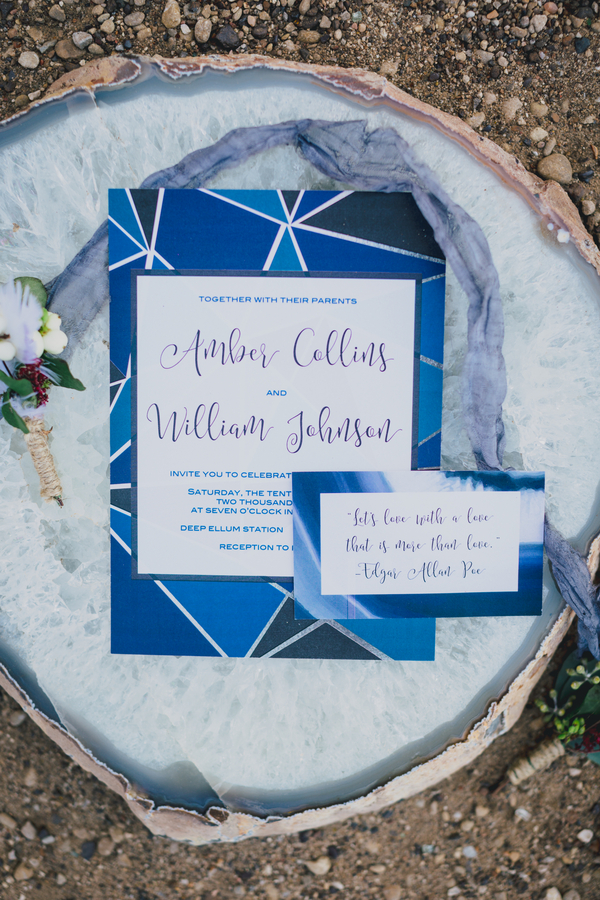 TOGETHER WITH THEIR PARENTS
Amber Collins
AND
William Johnson
INVITE YOU TO CELEBRAT
SATURDAY, THE TENT
TWO THOUSAND
AT SEVEN O'CLOCK IN
DEEP ELLUM STATION
RECEPTION TO
"Let's love with a love
that is more than love."
-Edgar Allan Poe